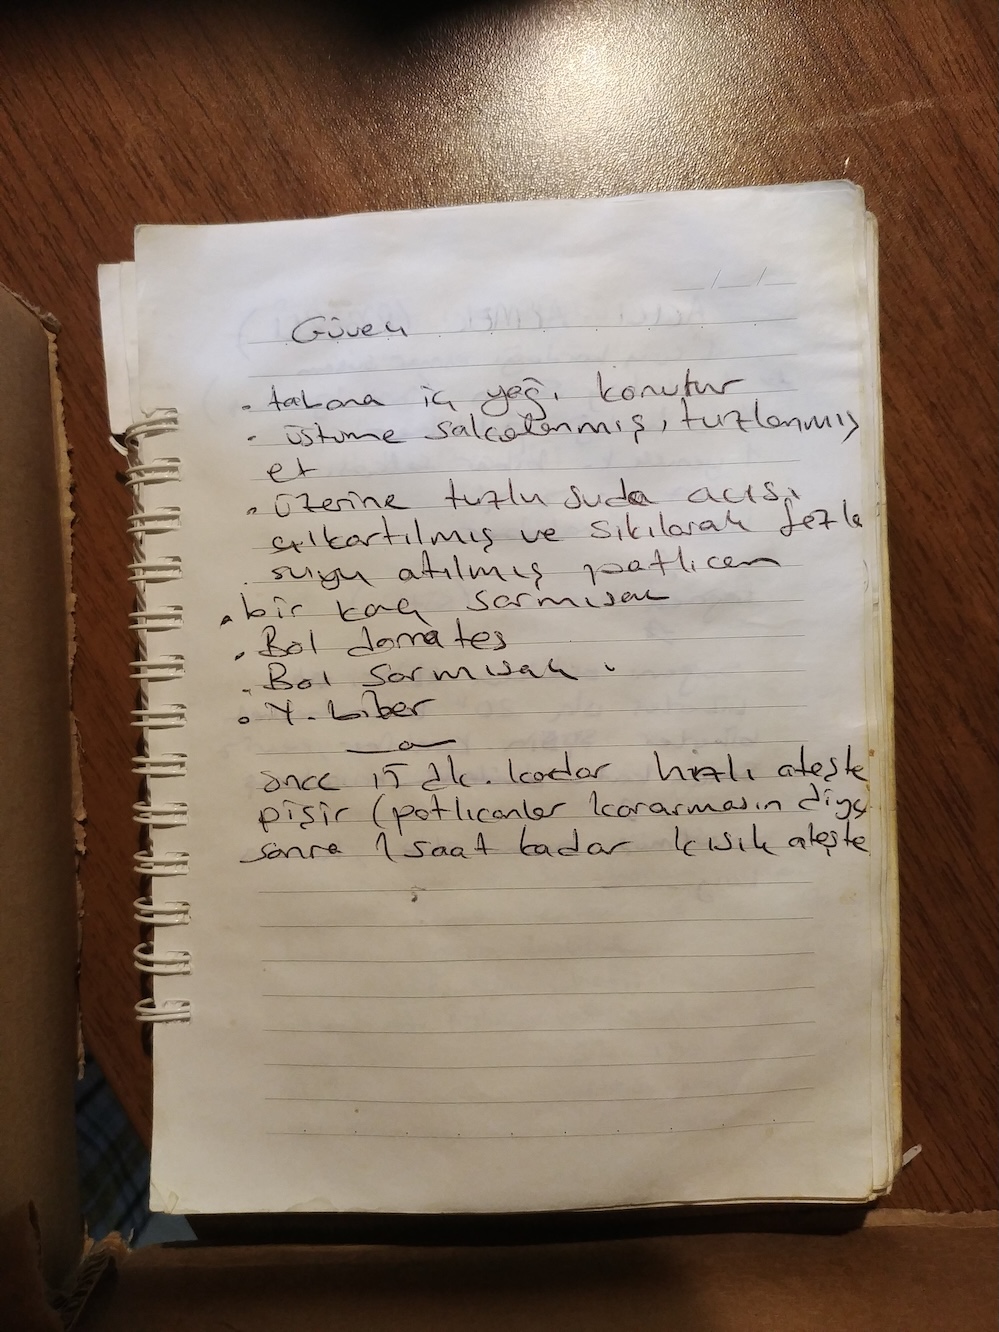 Güveç
. tabana iç yağı konulur
. üstüne salçalanmış, tuzlanmış
et
. üzerine tuzlu suda acısı
çıkartılmış ve sıkılarak fazla
suyu atılmış patlıcan
. bir kaç sarmısak
. Bol domates
. Bol sarmısak .
. Y. biber
önce 15 dk. kadar hızlı ateşte
pişir (patlıcanlar kararmasın diye
sonra 1 saat kadar kısık ateşte